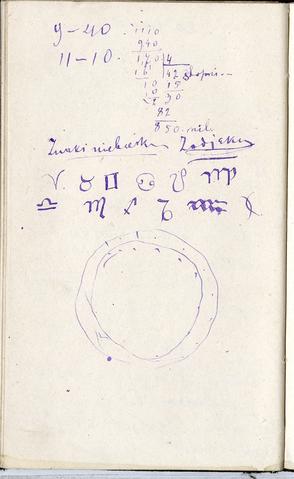 9 - 40 1110
11 - 10. 940
170 4
16 42
10 15
30
82
850. mil.
Znaki niebieskie Zodjaku
♈ ♉ ♊ ♋ ♌ ♍
♎ ♏ ♐ ♑ ♒ ♓